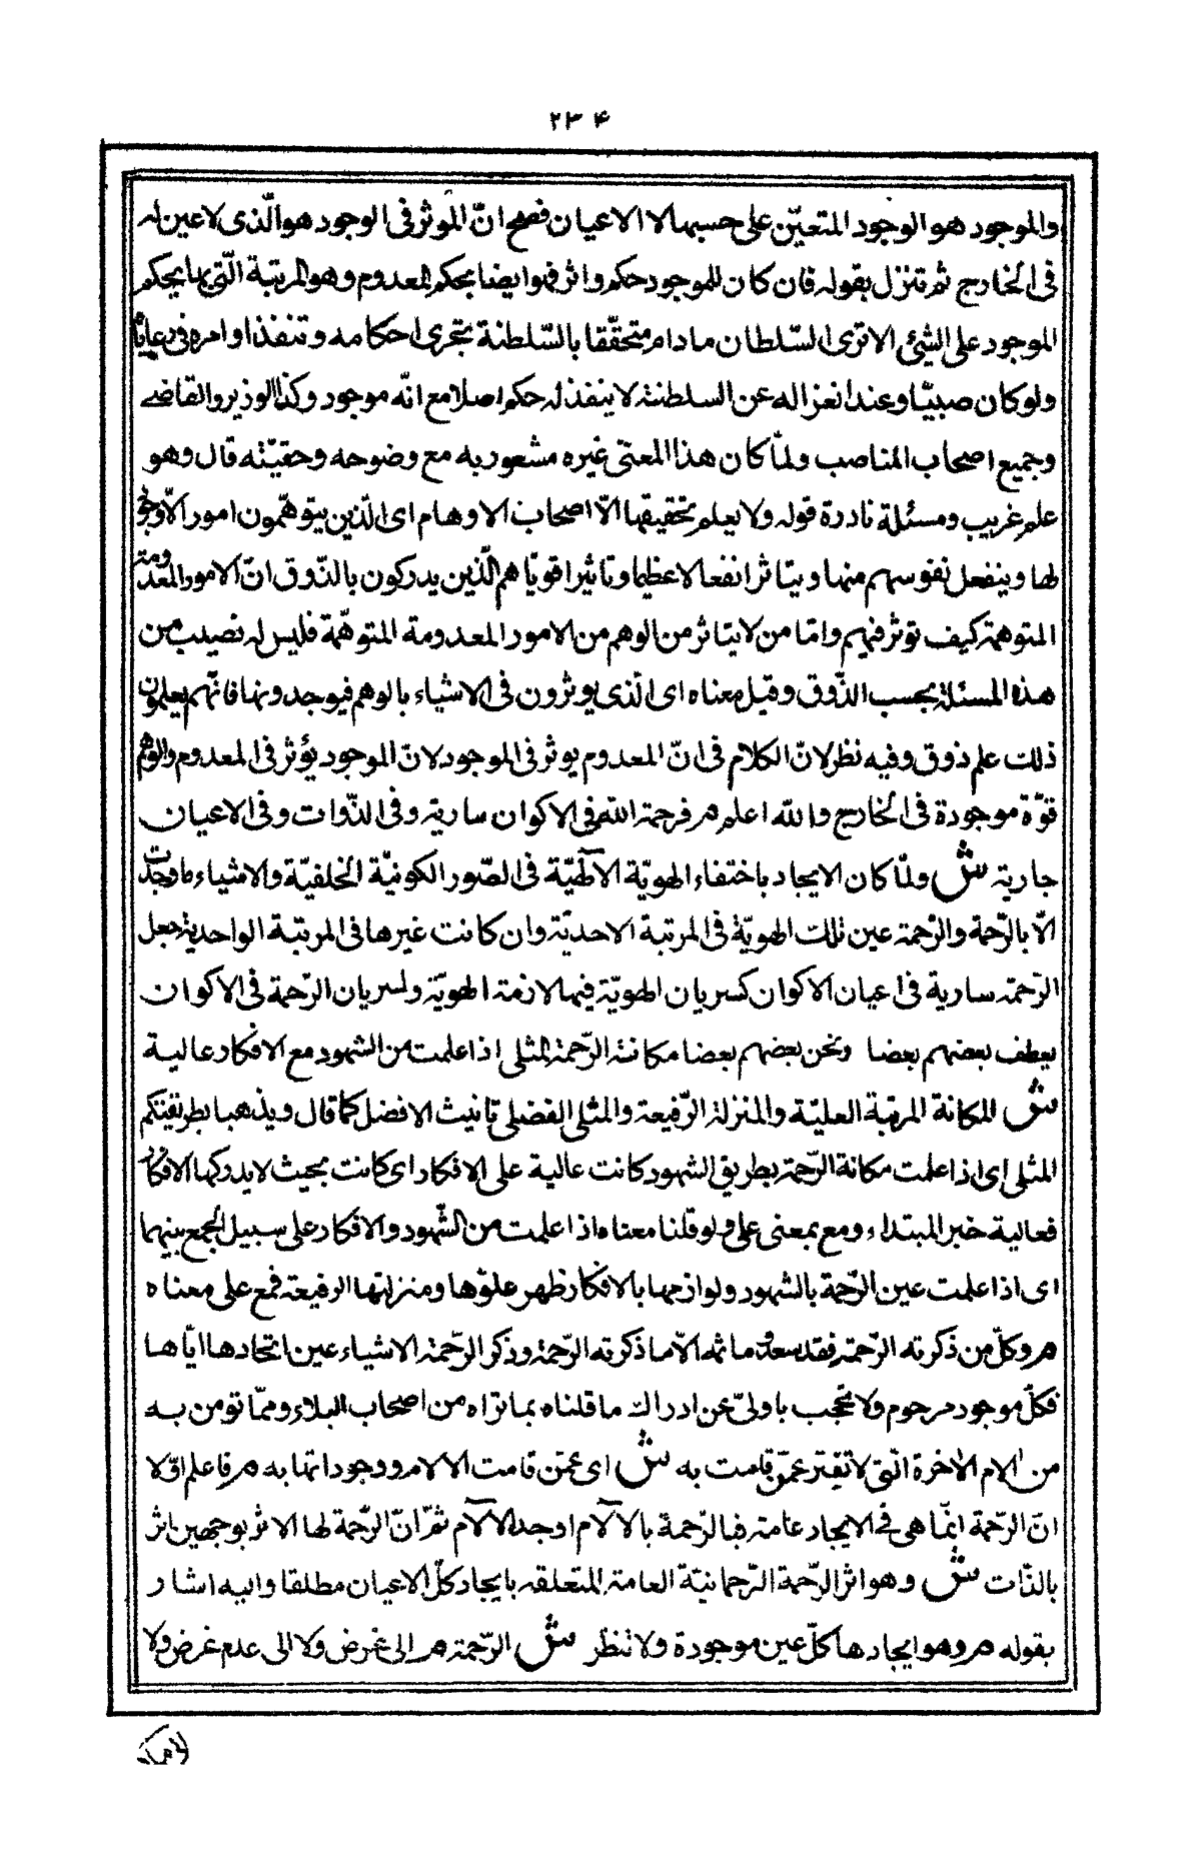 ٢٣۴
والموجود هو الوجود المتعيّن على حسبها لا الاعيان فصح انّ الموثر فى الوجود هو الّذى لا عين له
فى الخارج ثم تنزل بقوله فان كان للموجود حكم واثر فهو ايضا بحكم المعدوم وهو المرتبة الّتى بها يحكم
الموجود على الشيئ الا ترى السّلطان ما دام متحقّقا بالسّلطنة تجرى احكامه وتنفذ اوامره فى رعاياه
ولو كان صبيّا وعند انعزاله عن السلطنة لا ينفذ له حكم اصلا مع انّه موجود وكذا الوزير والقاضے
وجميع اصحاب المناصب ولمّا كان هذا المعنى غيره مشعور به مع وضوحه وحقيّته قال وهو
علم غريب ومسئلة نادرة قوله ولا يعلم تحقيقها الّا اصحاب الاوهام اى الّذين يتوهّمون امورا لا وجود
لها وينفعل نفوسهم منها ويتاثر انفعالا عظيما وتاثيرا قويّا هم الّذين يدركون بالذّوق انّ الامور المعدومة
المتوهمة كيف توثر فيهم وامّا من لا يتاثر من الوهم من الامور المعدومة المتوهّمة فليس له نصيب من
هذه المسئلة بحسب الذّوق وقيل معناه اى الّذى يوثرون فى الاشياء بالوهم فيوجدونها فانّهم يعلمون
ذلك علم ذوق وفيه نظر لانّ الكلام فى انّ المعدوم يوثر فى الموجود لانّ الموجود يؤثر فى المعدوم والوهم
قوّة موجودة فى الخارج والله اعلم م فرحمة الله فى الاكوان سارية وفى الذّوات وفى الاعيان
جارية ش ولمّا كان الايجاد باختفاء الهويّة الآلهيّة فى الصّور الكونيّة الخلقيّة والاشياء ما وجدت
الّا بالرّحمة والرّحمة عين تلك الهويّة فى المرتبة الاحديّة وان كانت غيرها فى المرتبة الواحدية جعل
الرّحمة سارية فى اعيان الاكوان كسريان الهويّة فيها لازمة الهويّة ولسريان الرّحمة فى الاكوان
يعطف بعضهم بعضا ونحن بعضهم بعضا مكانة الرّحمة المثلى اذا علمت من الشهود مع الافكار عالية
ش المكانة المرتبة العليّة والمنزلة الرّفيعة والمثلى الفضلى تانيث الافضل كما قال ويذهبا بطريقتكم
المثلى اى اذا علمت مكانة الرّحمة بطريق الشهود كانت عالية على الافكار اى كانت بحيث لا يدركها الافكار
فعالية خبر المبتداء ومع بمعنى على ولو قلنا معناه اذا علمت من الشّهود والافكار على سبيل الجمع بينهما
اى اذا علمت عين الرّحمة بالشهود ولوازمها بالافكار ظهر علوّها ومنزلتها الرفيعة فمع على معناه
م وكلّ من ذكرته الرّحمة فقد سعد وما ثمه الّا ما ذكرته الرّحمة وذكر الرّحمة الاشياء عين اتحادها ايّاها
فكلّ موجود مرحوم ولا تحجب يا ولىّ عن ادراك ما قلناه بما تراه من اصحاب البلاء وممّا تومن به
من الام الآخرة الّتى لا تفتر عمّن قامت به ش اى عمّن قامت الالام ووجوداتها به م فاعلم اوّلا
انّ الرّحمة انّما هى فى الايجاد عامة فبالرّحمة بالآلام اوجد الآلام ثمّ انّ الرّحمة لها الاثر بوجهين اثر
بالذّات ش وهو اثر الرّحمة الرّحمانيّة العامة المتعلقه بايجاد كلّ الاعيان مطلقا واليه اشار
بقوله م وهو ايجادها كلّ عين موجودة ولا تنظر ش الرّحمة م الى غرض ولا الى عدم غرض ولا